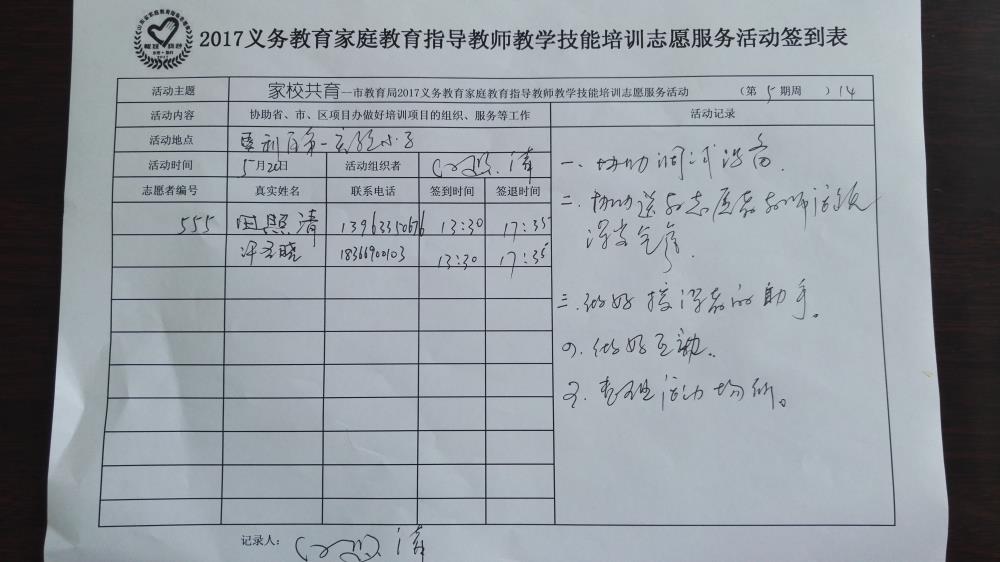 2017义务教育家庭教育指导教师教学技能培训志愿服务活动签到表
活动主题 家校共育—市教育局2017义务教育家庭教育指导教师教学技能培训志愿服务活动 （第 5 期周 ）14
活动内容 协助省、市、区项目办做好培训项目的组织、服务等工作 活动记录
活动地点 垦利区第一实验小学
活动时间 5月20日 活动组织者 清
志愿者编号 真实姓名 联系电话 签到时间 签退时间
555 田照清 13963350676 13:30 17:35
晓 18366900103 13:30 17:35
一、协助调试设备.
二、协助送教志愿者教师活跃
课堂气氛.
三.做好授课者的助手。
四.做好互动.
五.整理活动场所。
记录人： 清